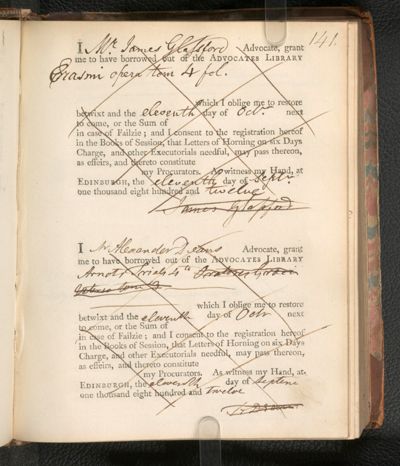 141.
I Mr. James Glassford Advocate, grant
me to have borrowed out of the ADVOCATES LIBRARY
Erasmi opera tom 4 fol.
which I oblige me to restore
betwixt and the eleventh day of Oct. next
to come, or the Sum of
in case of Failzie; and I consent to the registration hereof
in the Books of Session, that Letters of Horning on six Days
Charge, and other Executorials needful, may pass thereon,
as effeirs, and thereto constitute
my Procurators. As witness my Hand, at
EDINBURGH, the eleventh day of Septr.
one thousand eight hundred and twelve
James Glassford
I Mr Alexander Deans Advocate, grant
me to have borrowed out of the ADVOCATES LIBRARY
Arnots trials 4to
which I oblige me to restore
betwixt and the eleventh day of Octr next
to come, or the Sum of
in case of Failzie; and I consent to the registration hereof
in the Books of Session, that Letters of Horning on six Days
Charge, and other Executorials needful, may pass thereon,
as effeirs, and thereto constitute
my Procurators. As witness my Hand, at
EDINBURGH, the eleventh day of
one thousand eight hundred and twelve